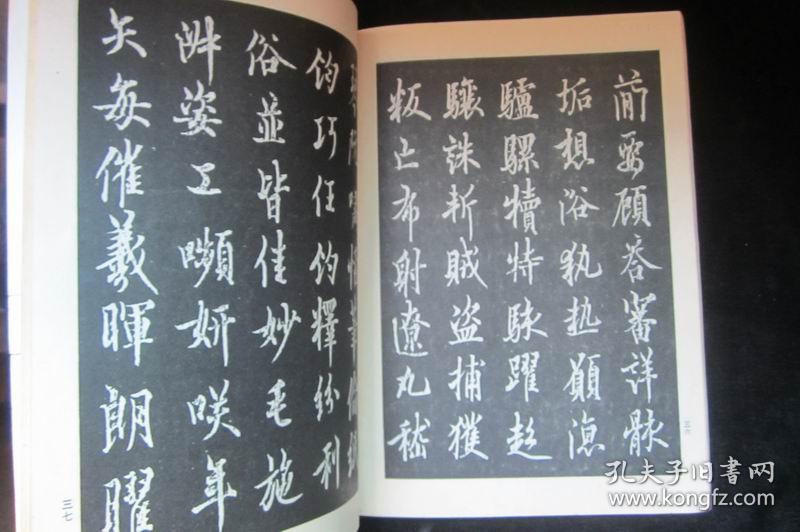 蕳要顧荅審詳骸
垢想浴執熱願涼
驢騾犢特駭躍超
驤誅斬賊盜捕獲
叛亡布射遼丸嵇
三六
琴阮嘯恬筆倫紙
鈞巧任釣釋紛利
俗並皆佳妙毛施
淑姿工嚬妍咲年
矢每催羲暉朗曜
三七
孔夫子旧书网
www.kongfz.com